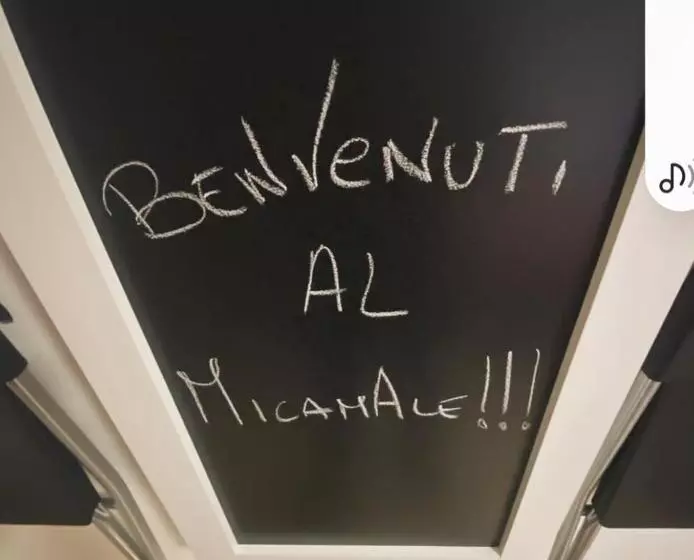 BENVENUTI
AL
MICAMALE!!!